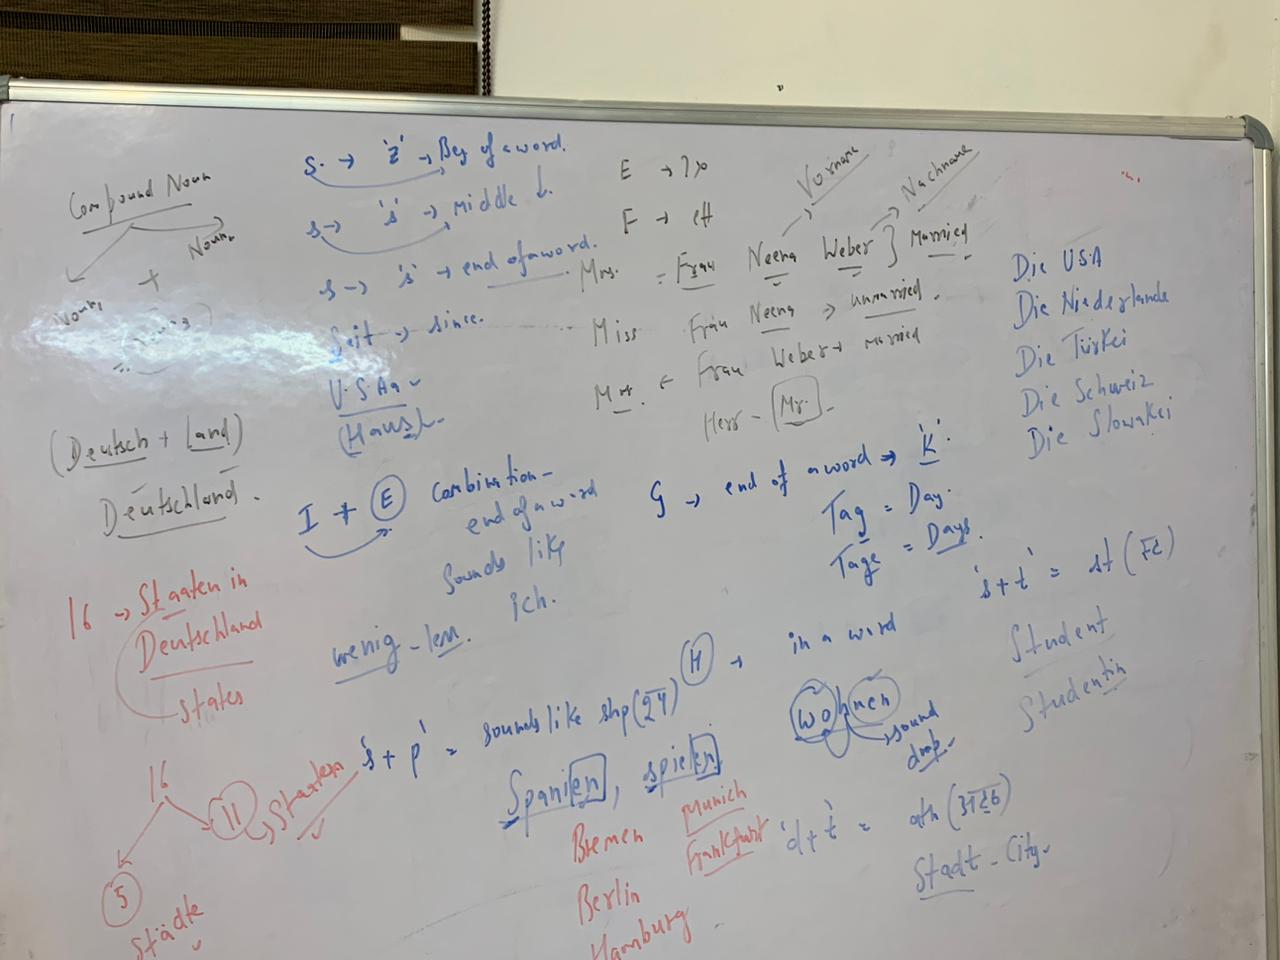 Compound Noun
Noun, + Noun.
(Deutsch + Land)
Deutschland.
16 → Staaten in
Deutschland
states
16
11 → Staaten
5
Städte
S. → 'z' → Beg of a word.
s → 's' → middle ↓.
s → 's' → end of a word.
Seit → since.
U.S.Aa
(Haus).
I + E combination -
end of a word
sounds like
ich.
wenig - less.
's + p' = sounds like shp
Spanien, spielen
Bremen
Munich
Frankfurt
Berlin
Hamburg
E →
F → eff
Vorname
Nachname
Mrs. = Frau Neena Weber } Married
Miss Frau Neena → unmarried.
Frau Weber → married
Herr - Mr.
G → end of a word → 'K'.
Tag = Day.
Tage = Days.
H → in a word
wohnen
→ sound
drop.
'd + t' =
Stadt - City
Die USA
Die Niederlande
Die Türkei
Die Schweiz
Die Slowakei
's + t' = st
Student
Studentin